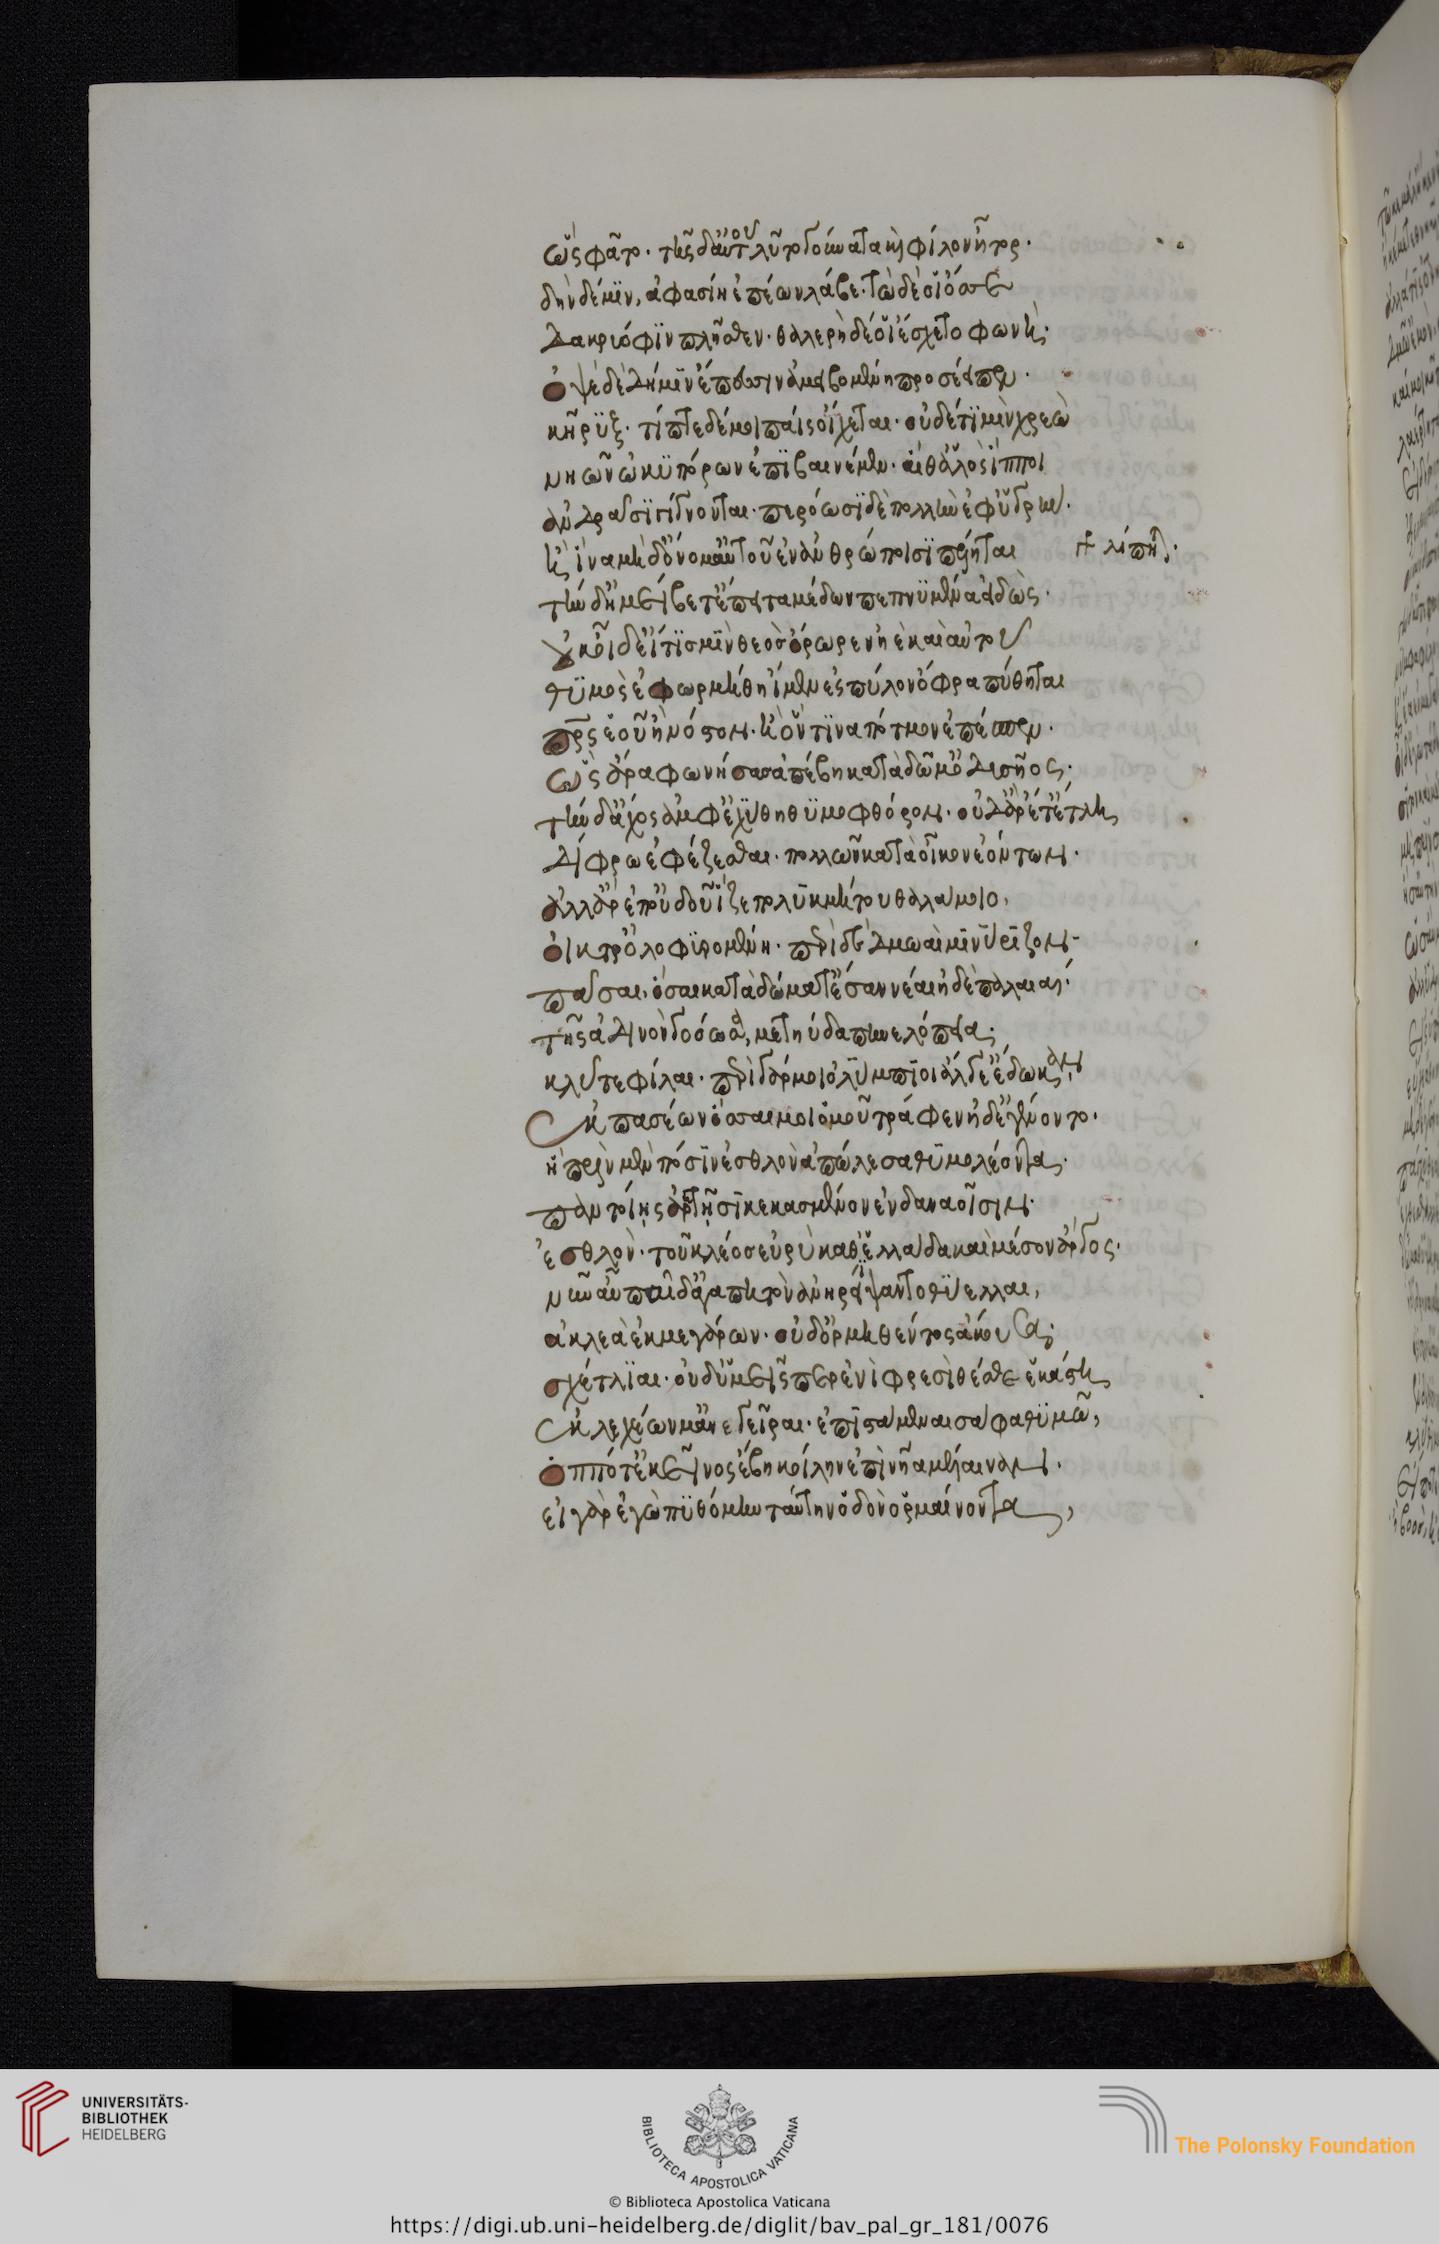 ὣς φάτο· τῆς δ' αὐτοῦ λῦτο γούνατα καὶ φίλον ἦτορ·
δὴν δέ μιν, ἀφασίη ἐπέων λάβε· τὼ δέ οἱ ὄσσε
δακρυόφιν πλῆσθεν· θαλερὴ δέ οἱ ἔσχετο φωνή·
ὀψὲ δὲ δή μιν ἔπεσσιν ἀμειβομένη προσέειπεν·
κῆρυξ· τίπτε δέ μοι πάις οἴχεται· οὐδέ τί μιν χρεὼ
νηῶν ὠκυπόρων ἐπιβαινέμεν· αἵ θ' ἁλὸς ἵπποι
ἀνδράσι γίγνονται· περόωσι δὲ πολλὴν ἐφ' ὑγρήν·
ἦ ἵνα μηδ' ὄνομ' αὐτοῦ ἐν ἀνθρώποισι πένηται λίπηται·
τὴν δ' ἠμείβετ' ἔπειτα μέδων πεπνυμένα εἰδώς·
οὐκ οἶδ' εἴ τίς μιν θεὸς ὄρωρεν ἠὲ καὶ αὐτοῦ
θυμὸς ἐφωρμήθη ἴμεν ἐς πύλον ὄφρα πύθηται
πατρὸς ἑοῦ ἢ νόστον· ἢ ὅντινα πότμον ἐπέσπεν·
ὣς ἄρα φωνήσας ἀπέβη κατὰ δῶμ' ὀδυσῆος·
τὴν δ' ἄχος ἀμφεχύθη θυμοφθόρον· οὐδ' ἄρ' ἔτ' ἔτλη
δίφρω ἐφέζεσθαι· πολλῶν κατὰ οἶκον ἐόντων·
ἀλλ' ἄρ' ἐπ' οὐδοῦ ἷζε πολυκμήτου θαλάμοιο,
οἴκτρ' ὀλοφυρομένη· περὶ δὲ δμωαὶ μινύριζον
πᾶσαι· ὅσαι κατὰ δώματ' ἔσαν νέαι ἠδὲ παλαιαί·
τῆς ἁδινὸν γοόωσα, μετηύδα πηνελόπεια·
κλῦτε φίλαι· περὶ γάρ μοι ὀλύμπιος ἄλγε' ἔδωκεν
ἐκ πασέων ὅσσαι μοι ὁμοῦ τράφεν ἠδ' ἐγένοντο·
ἣ πρὶν μὲν πόσιν ἐσθλὸν ἀπώλεσα θυμολέοντα·
παντοίης ἀρετῇσι κεκασμένον ἐν δαναοῖσιν·
ἐσθλὸν· τοῦ κλέος εὐρὺ καθ' ἑλλάδα καὶ μέσον ἄργος·
νῦν αὖ παῖδ' ἀγαπητὸν ἀνηρείψαντο θύελλαι,
ἀκλεᾶ ἐκ μεγάρων· οὐδ' ὁρμηθέντος ἄκουσα·
σχέτλιαι· οὐδ' ὑμεῖς περ ἐνὶ φρεσὶ θέσθε ἑκάστη
ἐκ λεχέων μ' ἀνεγεῖραι· ἐπιστάμεναι σάφα θυμῶ,
ὁππότ' ἐκεῖνος ἔβη κοίλην ἐπὶ νῆα μέλαιναν·
εἰ γὰρ ἐγὼ πυθόμην ταύτην ὁδὸν ὁρμαίνοντα,
UNIVERSITÄTS-
BIBLIOTHEK
HEIDELBERG
BIBLIOTECA APOSTOLICA VATICANA
The Polonsky Foundation
© Biblioteca Apostolica Vaticana
https://digi.ub.uni-heidelberg.de/diglit/bav_pal_gr_181/0076